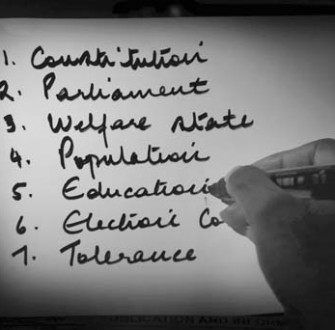 1. Constitution
2. Parliament
3. Welfare state
4. Population
5. Education
6. Election Co
7. Tolerance